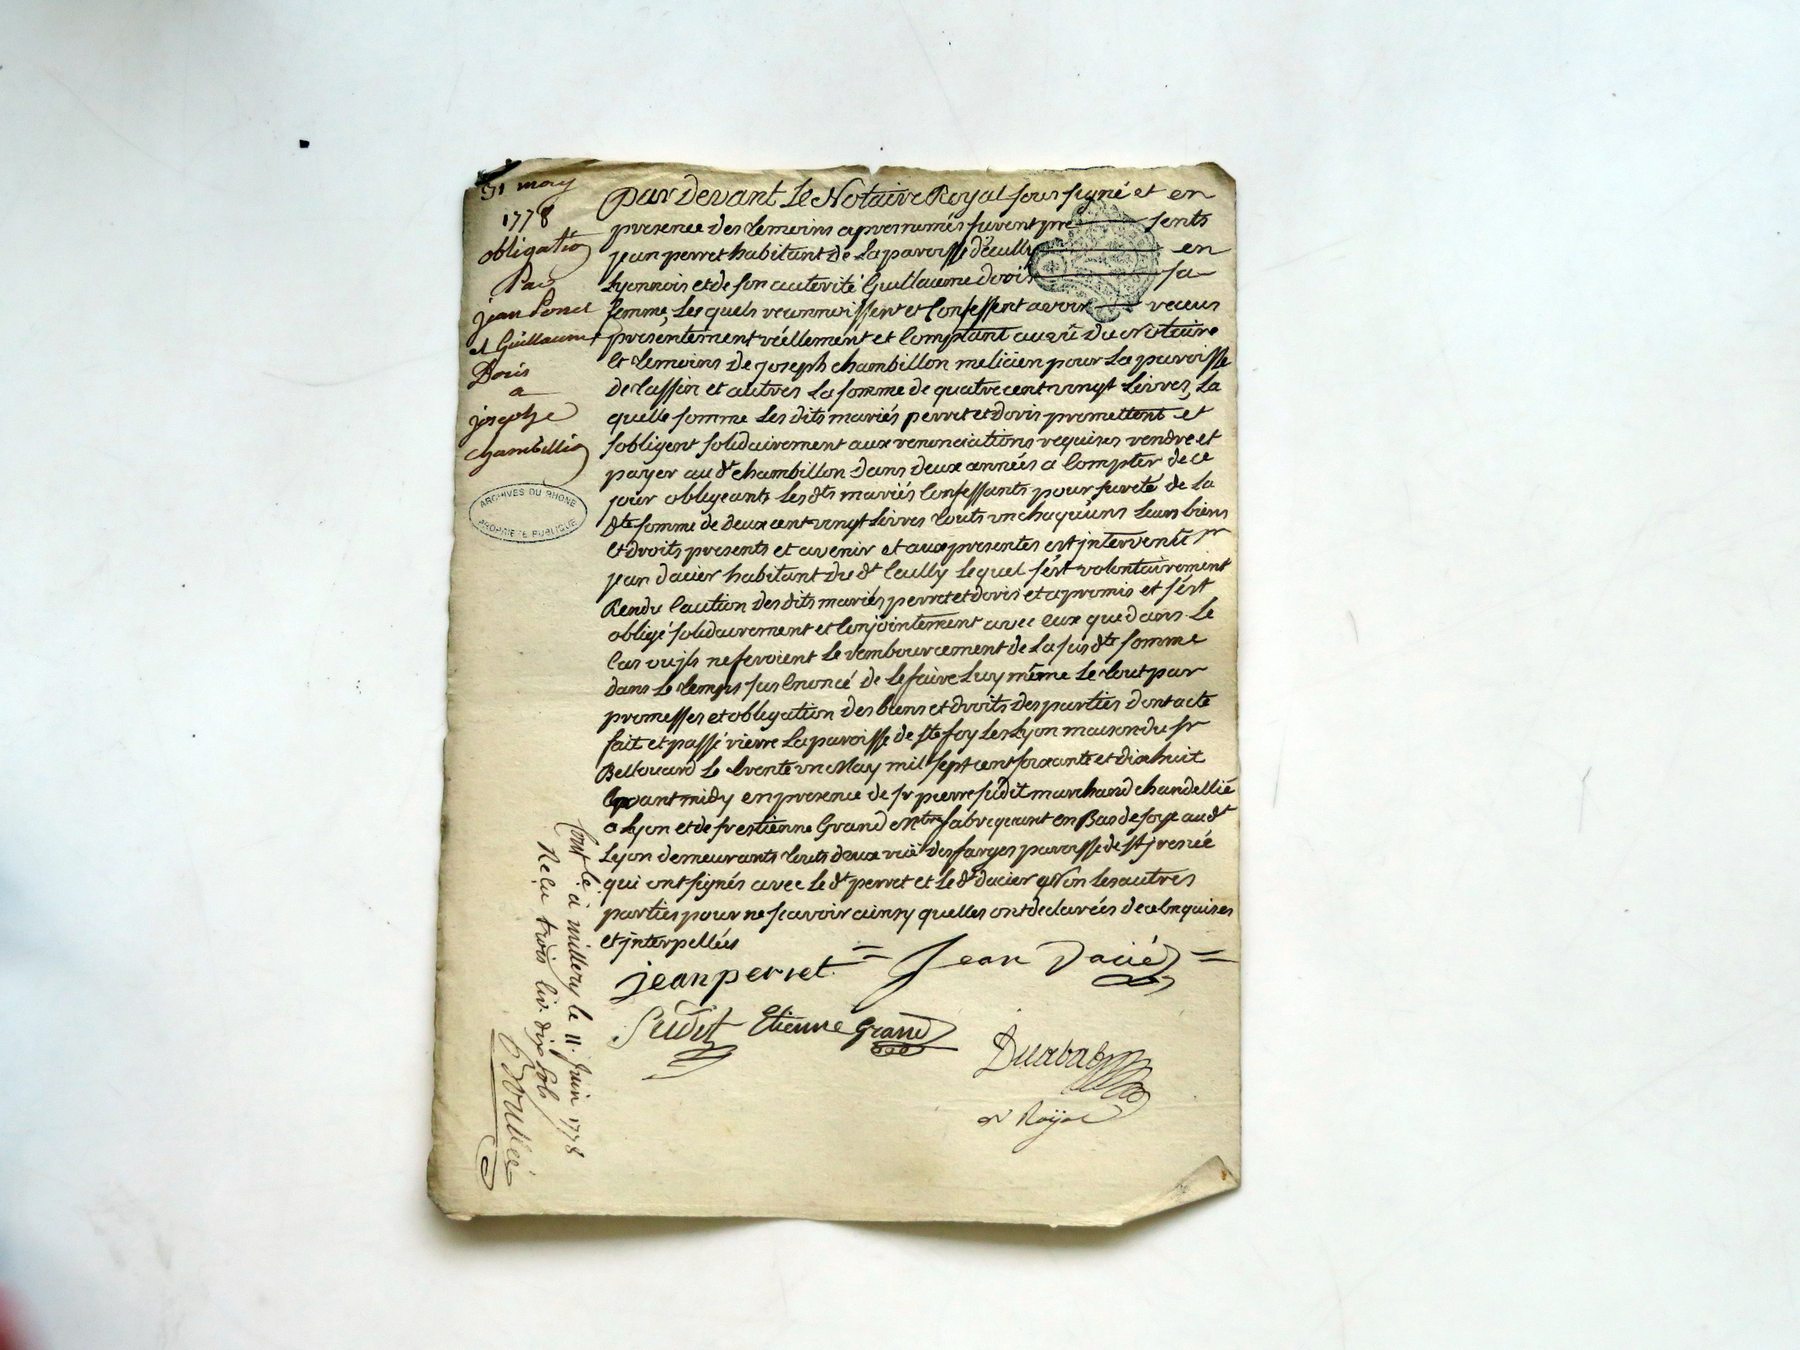 31 may
1778
obligation
Par
jean Perret
et Guillaume
Doris
a
josephe
chambillion
ARCHIVES DU RHONE
PROPRIETE PUBLIQUE
par Devant Le Notaire Royal sous signé et en
presence des temoins apres només furent pre sents
jean perret habitant de La paroisse d'ecully en
Lyonnois et de son autorité Guillaume doris sa
femme, Les quels reconnoissent et Confessent avoir receus
présentement réellement et Comptant au vû du Notaire
Et temoins de joseph chambillon melicien pour La paroisse
de tassin et autres La somme de quatre cent vingt Livres, La
quelle somme Les dits mariés perret et doris promettent et
sobligent solidairement aux renonciations requises rendre et
payer au dt chambillon dans deux années a Compter de ce
jour obligeants Les dts mariés Confessants pour sureté de La
dte somme de deux cent vingt Livres touts un chaquuns Leurs biens
et droits presents et avenir et aux presentes est intervenu sr
jean dacier habitant du dt Ecully Lequel s'ést volontairement
Rendu Caution des dits mariés perret et doris et a promis et s'ést
obligé solidairement et Conjointement avec eux que dans Le
Cas ou jls ne feroient Le rembourcement de La sus dte somme
dans Le temps sus Enoncé de Le faire Luy même Le tout par
promesses et obligation des biens et droits des parties dont acte
fait et passé rierre La paroisse de ste foy Les Lyon maison du sr
Bellouard Le trente un May mil sept cent soixante et dix huit
avant midy en presence de sr pierre sudit marchand chandellié
a Lyon et de sr estienne Grand Mtre fabriquant en Bas de soye au dt
Lyon demeurants touts deux rüe des farges paroisse de st jrenée
qui ont signés avec Le dt perret et Le dt dacier & Non Les autres
parties pour ne scavoir ainsy quelles ont declarées de ce Enquises
et interpellées
jean perret
Jean Dacié
Sudit
Etienne Grand
Durbas
Nre Royal
Cont.lé à millery le 11. Juin 1778
Reçu trois liv. dix sols